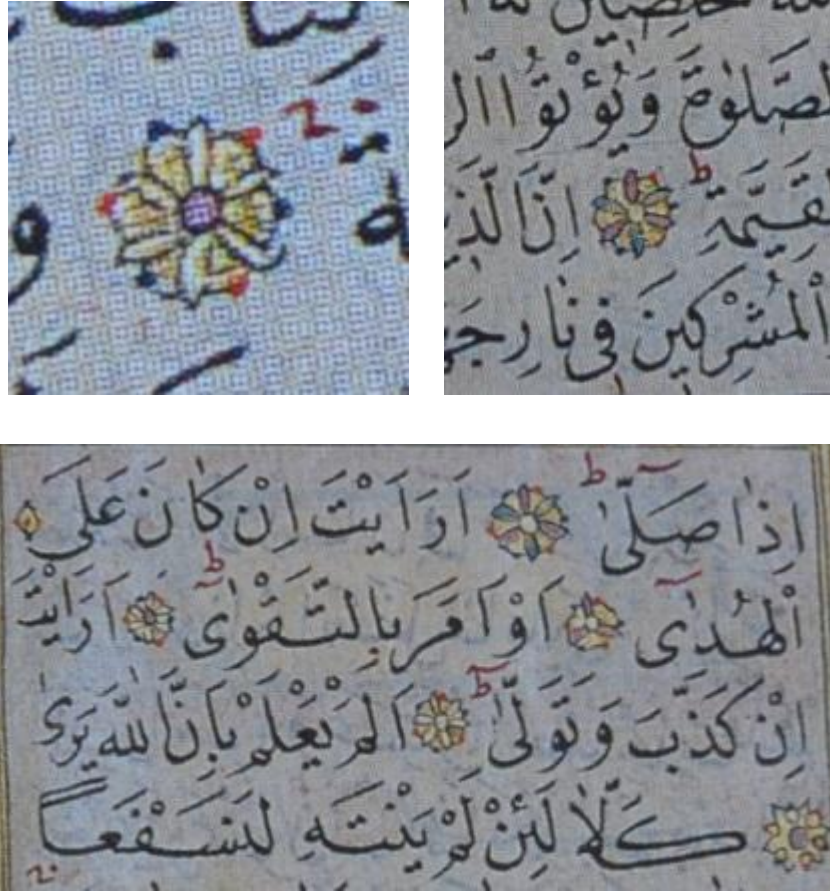 لصَّلٰوةَ وَيُؤْتُوا
اِنَّ
ٱلْمُشْرِكِينَ فِي نَارِ
اِذَا صَلّٰى ط اَرَاَيْتَ اِنْ كَانَ عَلَى
اَلْهُدٰى اَوْ اَمَرَ بِالتَّقْوٰى ط اَرَاَيْتَ
اِنْ كَذَّبَ وَتَوَلّٰى ط اَلَمْ يَعْلَمْ بِاَنَّ اللهَ يَرٰى
كَلَّا لَئِنْ لَمْ يَنْتَهِ لَنَسْفَعاً